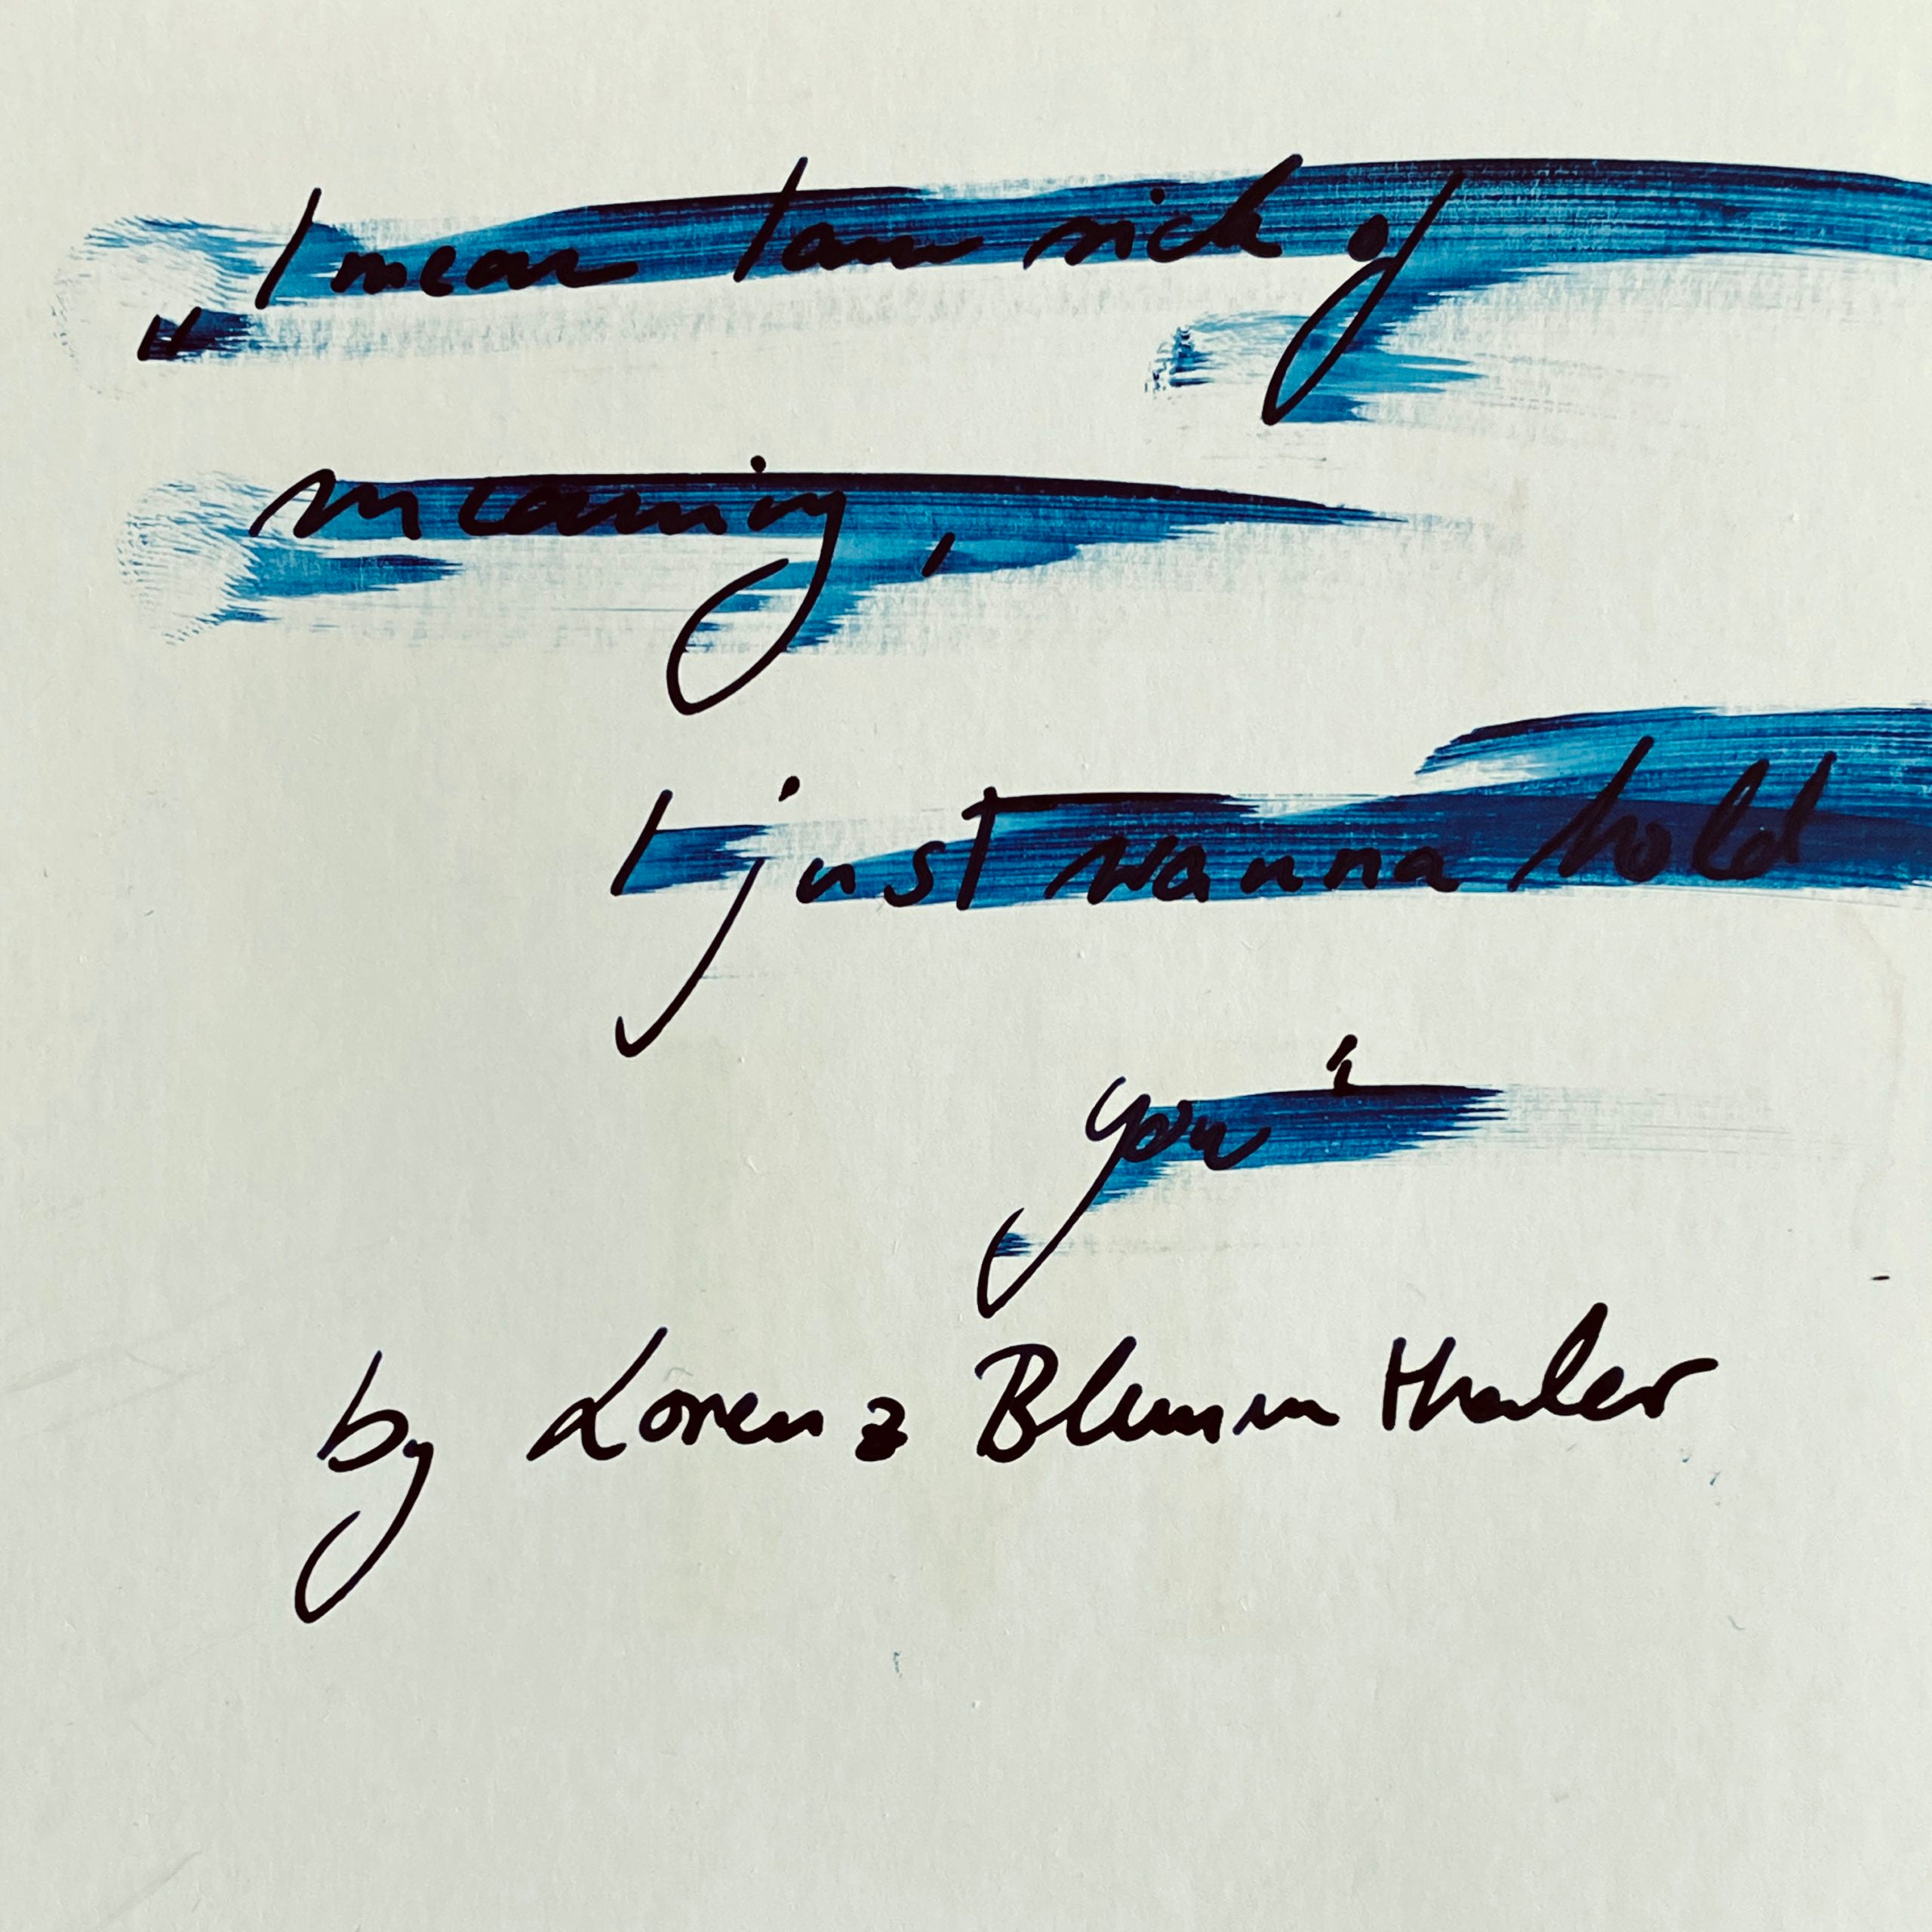 „I mean I am sick of
meaning,
I just wanna hold
you“
by Lorenz Blumenthaler